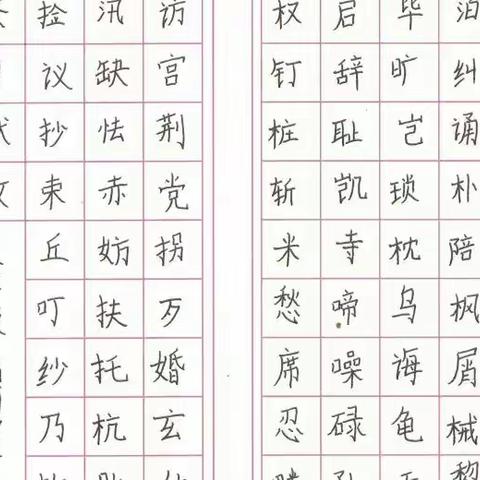 捡 汛 访 权 启 毕 泊
议 缺 宫 钉 辞 旷 纠
抄 怯 荆 桩 耻 岂 诵
束 赤 党 斩 凯 琐 朴
丘 妨 拐 米 寺 枕 陪
叮 扶 歹 愁 啼 乌 枫
纱 托 婚 席 噪 诲 屑
乃 杭 玄 忍 碌 龟 械